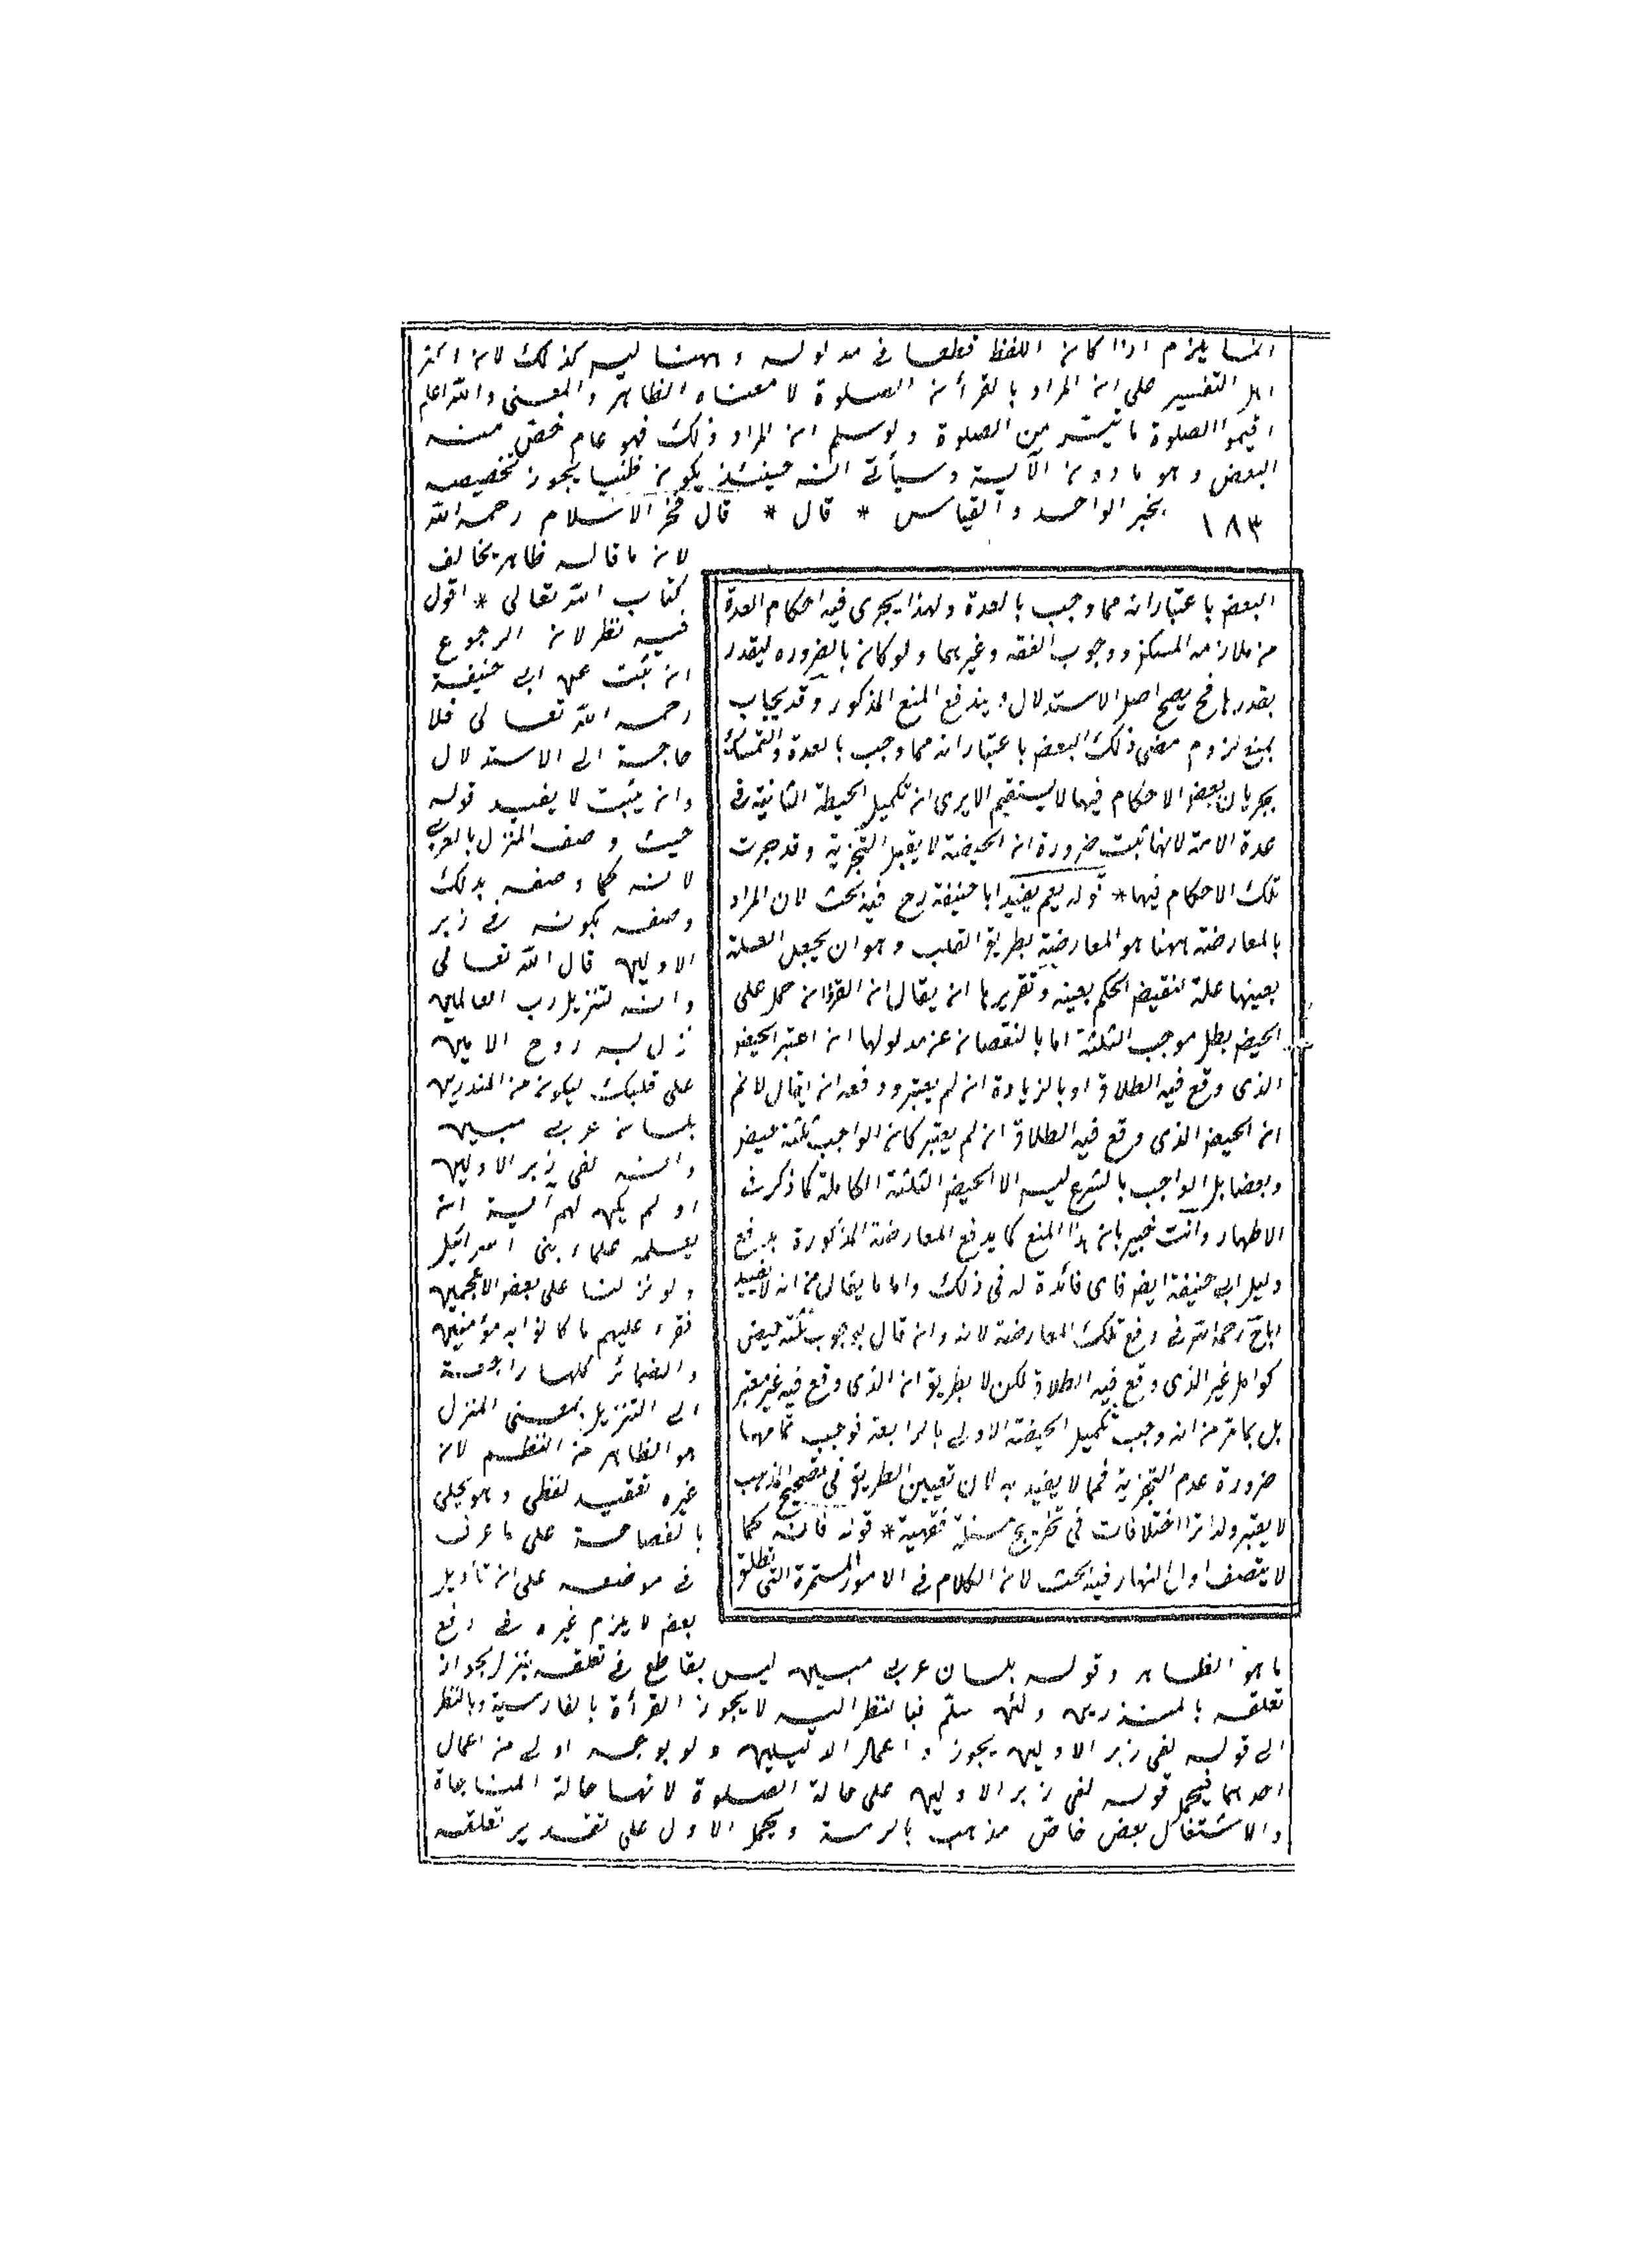 انما يلزم اذا كان اللفظ قطعيا فى مدلوله وههنا ليس كذلك لان اكثر
اهل التفسير على ان المراد بالقرأن الصلوة لا معناه الظاهر والمعنى والله اعلم
اقيموا الصلوة ما تيسر من الصلوة ولو سلم ان المراد ذلك فهو عام خص منه
البعض وهو ما دون الآية وسيأتى انه حينئذ يكون ظنيا يجوز تخصيصه
١٨٣ بخبر الواحد والقياس * قال * قال فخر الاسلام رحمه الله
لان ما قاله ظاهر يخالف
كتاب الله تعالى * اقول
فيه نظر لان الرجوع
ان ثبت عن ابى حنيفة
رحمه الله تعالى فلا
حاجة الى الاستدلال
وان يثبت لا يفيد قوله
حيث وصف المنزل بالعربى
لانه كما وصفه بذلك
وصفه بكونه فى زبر
الاولين قال الله تعالى
وانه لتنزيل رب العالمين
نزل به روح الامين
على قلبك ليكون من المنذرين
بلسان عربى مبين
وانه لفى زبر الاولين
او لم يكن لهم آية ان
يعلمه علماء بنى اسرائيل
ولو نزلنا على بعض الاعجمين
فقرء عليهم ما كانوا به مؤمنين
والضمائر كلها راجعة
الى التنزيل بمعنى المنزل
هو الظاهر من النظم لان
غيره تعقيد لفظى وهو يخل
بالفصاحة على ما عرف
فى موضعه على ان تأويل
بعض لا يلزم غيره فى رفع
ما هو الظاهر وقوله بلسان عربى مبين ليس بقاطع فى تعلقه بنزل لجواز
تعلقه بالمنذرين ولئن سلم فبالنظر اليه لا يجوز القرأة بالفارسية وبالنظر
الى قوله لفى زبر الاولين يجوز واعمال الدليلين ولو بوجه اولى من اعمال
احدهما فيحمل قوله لفى زبر الاولين على حالة الصلوة لانها حالة المناجاة
والاشتغال بعض خاص مذهب بالرسة ويحمل الاول على تقدير تعلقه
البعض باعتبار انه مما وجب بالعدة ولهذا يجرى فيه احكام العدة
من ملازمه المسكن ووجوب النفقه وغيرهما ولو كان بالضروره ليقدر
بقدرها فح يصح اصل الاستدلال ويندفع المنع المذكور وقد يجاب
بمنع لزوم مضى ذلك البعض باعتبار انه مما وجب بالعدة والتمسك
بجريان بعض الاحكام فيها لا يستقيم الا يرى ان تكميل الحيضة الثانية فى
عدة الامة لانها ثبت ضرورة ان الحيضة لا يقبل التجزية وقد جرت
تلك الاحكام فيها * قوله يفيد ابا حنيفة رح فيه بحث لان المراد
بالمعارضة ههنا هو المعارضة بطريق القلب وهو ان يجعل العلة
بعينها علة لنقيض الحكم بعينه وتقريرها ان يقال ان القرؤ ان حمل على
الحيض بطل موجب الثلثة اما بالنقصان عن مدلولها ان اعتبر الحيض
الذى وقع فيه الطلاق او بالزيادة ان لم يعتبر ودفعه ان يقال لا نم
ان الحيض الذى وقع فيه الطلاق ان لم يعتبر كان الواجب ثلثة حيض
وبعضا بل الواجب بالشرع ليس الا الحيض الثلثة الكاملة كما ذكرت
الاطهار وانت خبير بان هذا المنع كما يدفع المعارضة المذكورة يدفع
دليل ابى حنيفة ايضا فاى فائدة له فى ذلك واما ما يقال من انه لا يفيد
اباح رحمه الله فى رفع تلك المعارضة لانه وان قال بوجوب ثلثة حيض
كوامل غير الذى وقع فيه الطلاق لكن لا بطريق ان الذى وقع فيه غير معتبر
بل بما مر من انه وجب تكميل الحيضة الاولى بالرابعة فوجب تمامها
ضرورة عدم التجزية فمما لا يفيد به لان تعيين الطريق فى تصحيح المذهب
لا يعتبر ولذا ترا اختلافات فى تخريج مسئلة فقهية * قوله فانه كما
لا يتصف اول النهار فيه بحث لان الكلام فى الامور المستمرة التى تطلق